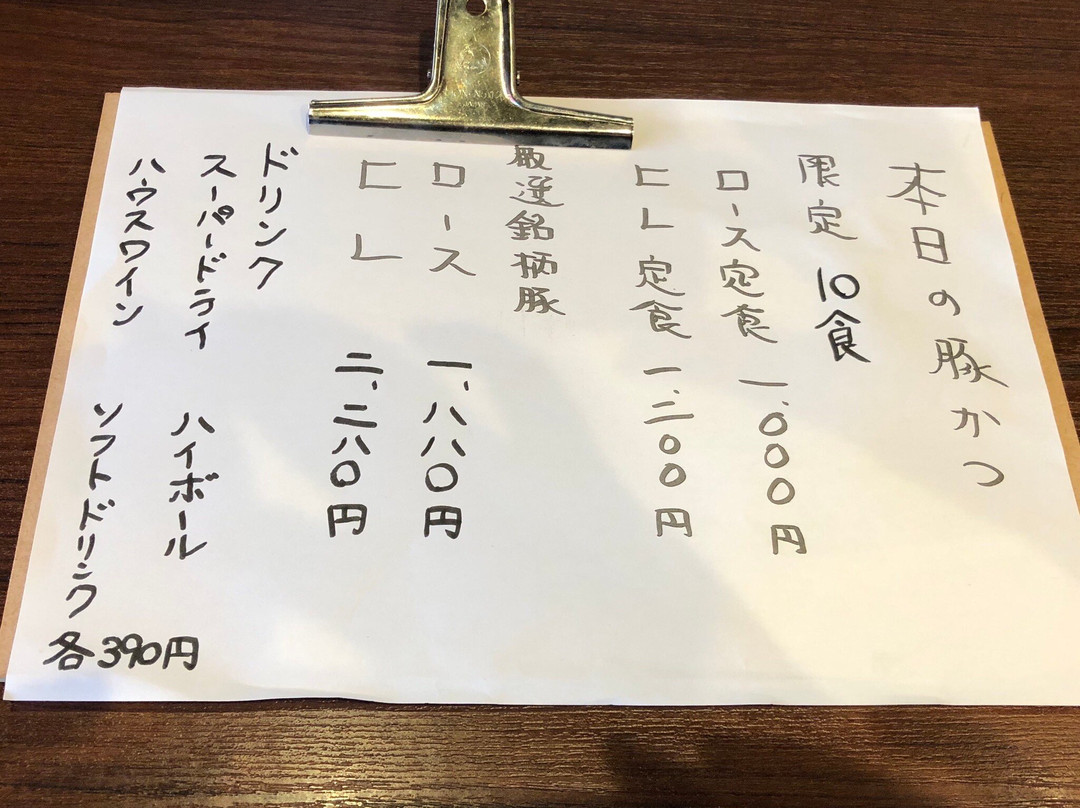 本日の豚かつ
限定 10食
ロース定食 一、〇〇〇円
ヒレ定食 一、二〇〇円
厳選銘柄豚
ロース 一、八八〇円
ヒレ 二、二八〇円
ドリンク
スーパードライ ハイボール
ハウスワイン ソフトドリンク
各390円